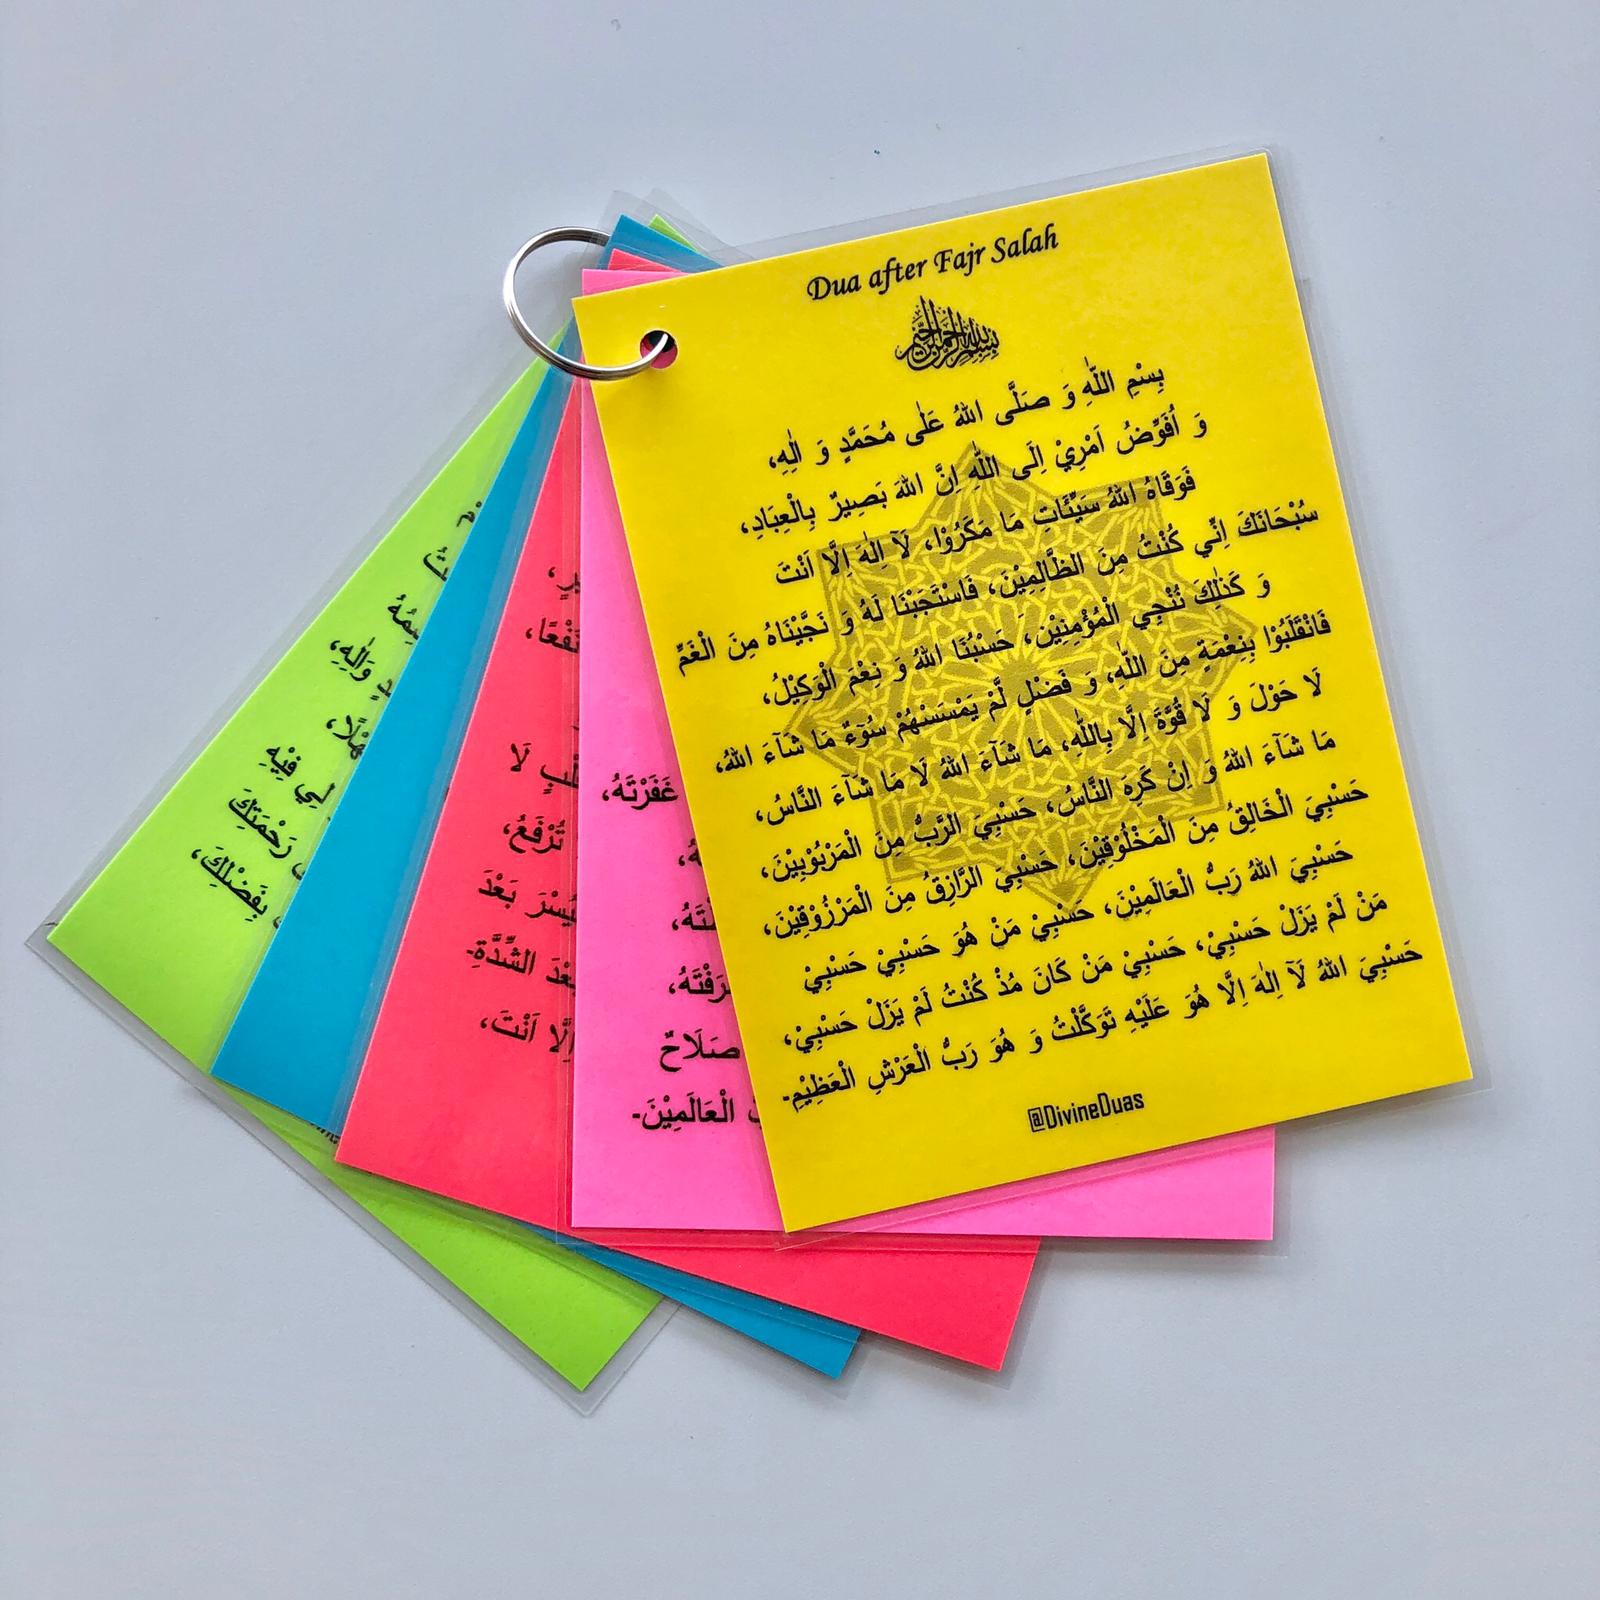 Dua after Fajr Salah
بِسْمِ اللهِ الرَّحْمٰنِ الرَّحِيْمِ
بِسْمِ اللّٰهِ وَ صَلَّى اللهُ عَلٰى مُحَمَّدٍ وَ اٰلِهِ،
وَ اُفَوِّضُ اَمْرِيْ اِلَى اللّٰهِ اِنَّ اللهَ بَصِيرٌ بِالْعِبَادِ،
فَوَقَاهُ اللهُ سَيِّئَاتِ مَا مَكَرُوْا، لَآ اِلٰهَ اِلَّا اَنْتَ
سُبْحَانَكَ اِنِّي كُنْتُ مِنَ الظَّالِمِيْنَ، فَاسْتَجَبْنَا لَهُ وَ نَجَّيْنَاهُ مِنَ الْغَمِّ
وَ كَذٰلِكَ نُنْجِي الْمُؤْمِنِيْنَ، حَسْبُنَا اللهُ وَ نِعْمَ الْوَكِيْلُ،
فَانْقَلَبُوْا بِنِعْمَةٍ مِنَ اللّٰهِ، وَ فَضْلٍ لَمْ يَمْسَسْهُمْ سُوْٓءٌ مَا شَآءَ اللهُ،
لَا حَوْلَ وَ لَا قُوَّةَ اِلَّا بِاللّٰهِ، مَا شَآءَ اللهُ لَا مَا شَآءَ النَّاسُ،
مَا شَآءَ اللهُ وَ اِنْ كَرِهَ النَّاسُ، حَسْبِيَ الرَّبُّ مِنَ الْمَرْبُوْبِيْنَ،
حَسْبِيَ الْخَالِقُ مِنَ الْمَخْلُوْقِيْنَ، حَسْبِيَ الرَّازِقُ مِنَ الْمَرْزُوْقِيْنَ،
حَسْبِيَ اللهُ رَبُّ الْعَالَمِيْنَ، حَسْبِيْ مَنْ هُوَ حَسْبِيْ حَسْبِيْ
مَنْ لَمْ يَزَلْ حَسْبِيْ، حَسْبِيْ مَنْ كَانَ مُذْ كُنْتُ لَمْ يَزَلْ حَسْبِيْ،
حَسْبِيَ اللهُ لَآ اِلٰهَ اِلَّا هُوَ عَلَيْهِ تَوَكَّلْتُ وَ هُوَ رَبُّ الْعَرْشِ الْعَظِيْمِ-
@DivineDuas
غَفَرْتَهُ،
صَلَاحٌ
الْعَالَمِيْنَ-
لَا
تُرْفَعُ،
بَعْدَ
الشِّدَّةِ-
اِلَّا اَنْتَ،
وَاٰلِهِ،
لِي فِيْهِ
رَحْمَتِكَ
بِفَضْلِكَ،